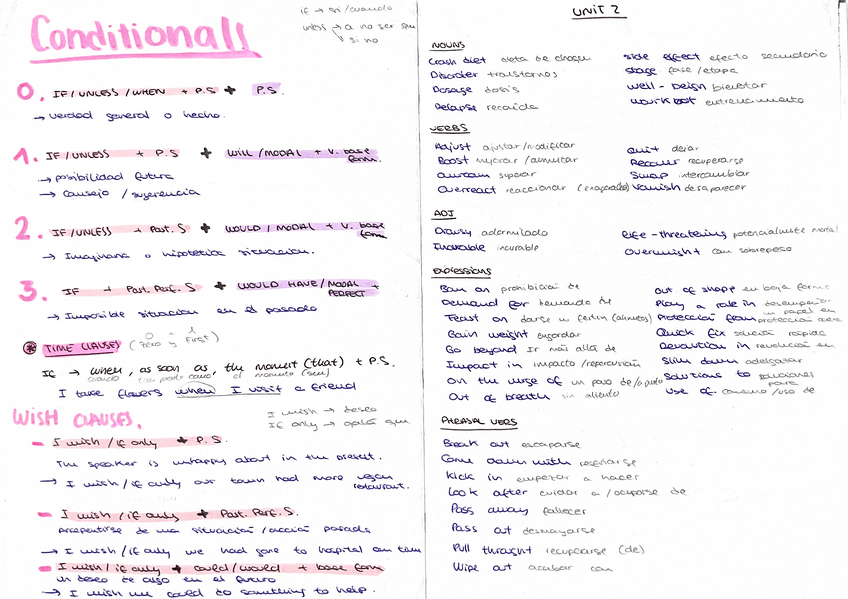 Conditionals
if → si / cuando
unless → a no ser que
si no
0. IF / UNLESS / WHEN + P.S + P.S.
→ verdad general o hecho.
1. IF / UNLESS + P.S + WILL / MODAL + V. base form.
→ posibilidad futura
→ Consejo / sugerencia
2. IF / UNLESS + Past. S + WOULD / MODAL + V. base form
→ Imaginaria o hipotetica situación.
3. IF + Past. Perf. S + WOULD HAVE / MODAL + PERFECT
→ Imposible situación en el pasado
* TIME CLAUSES (Zero y First)
0 - 1
If → when, as soon as, the moment (that) + P.S.
cuando tan pronto como el momento (que)
I take flowers when I visit a friend
WISH CLAUSES.
I wish → deseo
If only → ojalá que
- I wish / if only + P.S.
The speaker is unhappy about in the present.
→ I wish / if only our town had more vegan restaurant.
- I wish / if only + Past. Perf. S.
Arrepentirse de una situación / acción pasada
→ I wish / if only we had gone to hospital on time
- I wish / if only + could / would + base form
un deseo de algo en el futuro
→ I wish we could do something to help.
UNIT 2
NOUNS
Crash diet dieta de choque
Disorder transtornos
Dosage dosis
Relapse recaida
side effect efecto secundario
stage fase / etapa
well - being bienestar
workout entrenamiento
VERBS
Adjust ajustar / modificar
Boost mejorar / aumentar
Overcom superar
Overreact reaccionar (exagerado)
Quit dejar
Recover recuperarse
Swap intercambiar
Vanish desaparecer
ADJ
Drowsy adormilado
Incurable incurable
Life - threatening potencialmente mortal
Overweight con sobrepeso
EXPRESSIONS
Ban on prohibición de
Demand for demanda de
Feast on darse un festin (alimentos)
Gain weight engordar
Go beyond Ir más allá de
Impact in impacto / repercusión
On the urge of un paso de / a punto
Out of breath sin aliento
Out of shape en baja forma
Play a role in desempeñar un papel en
Protección from protección contra
Quick fix solución rápida
Revolution in revolución en
Slim down adelgazar
Solutions to soluciones para
Use of consumo / uso de
PHRASAL VERS
Break out escaparse
Come down with resfriarse
Kick in empezar a hacer
Look after cuidar a / ocuparse de
Pass away fallecer
Pass out desmayarse
Pull throught recuperarse (de)
Wipe out acabar con